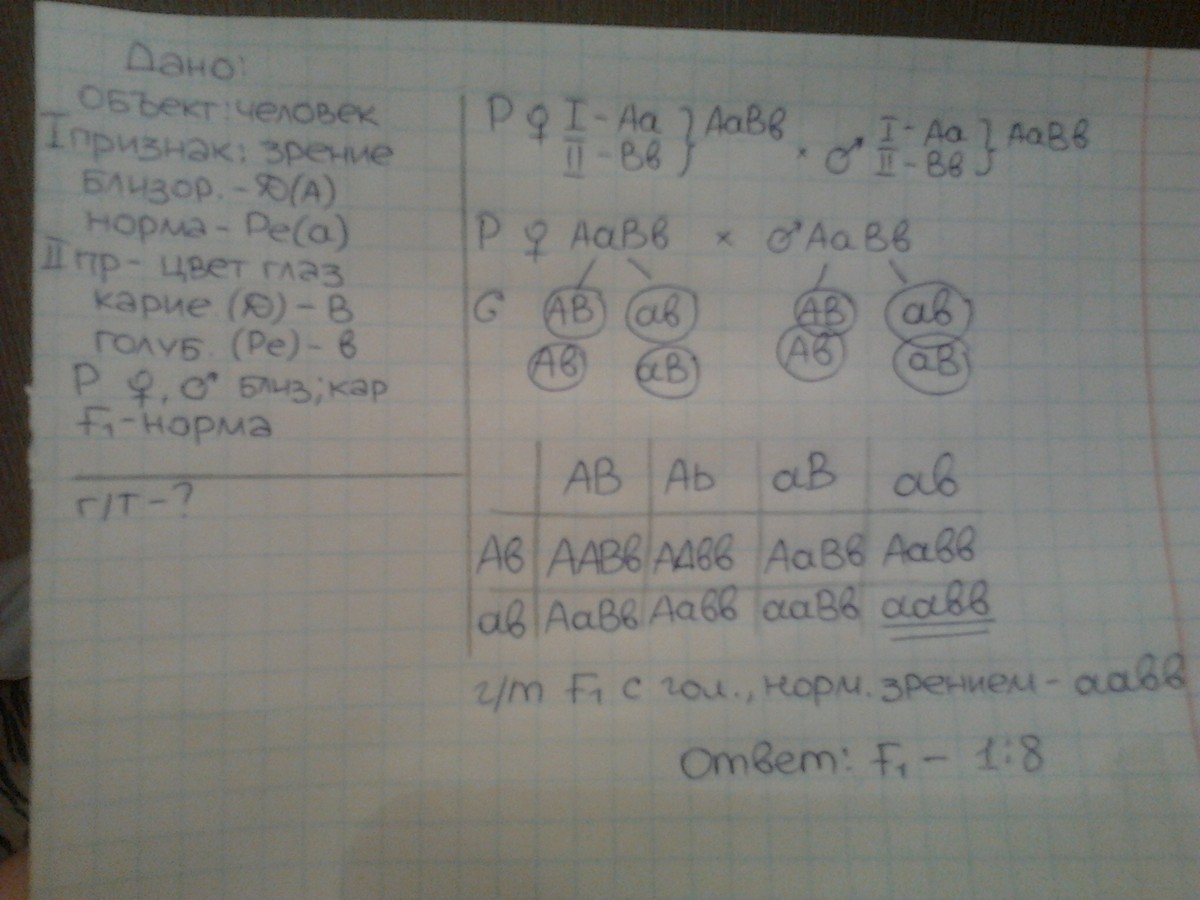 Дано:
Объект: человек
I признак: зрение
близор. - D(A)
норма - Ре(а)
II пр - цвет глаз
карие (D) - В
голуб. (Ре) - в
Р ♀, ♂ близ; кар
F₁ - норма
г/т - ?
Р ♀ I - Аа } АаВв × ♂ I - Аа } АаВв
II - Вв II - Вв
Р ♀ АаВв × ♂ АаВв
G АВ ав АВ ав
Ав аВ Ав аВ
АВ Аb аВ ав
Ав ААВв ААвв АаВв Аавв
ав АаВв Аавв ааВв аавв
г/т F₁ с гол., норм. зрением - аавв
Ответ: F₁ - 1:8